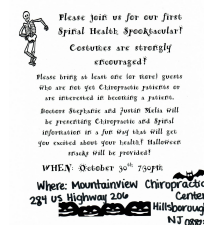 Please join us for our first
Spinal Health Spooktacular!
Costumes are strongly
encouraged!
Please bring at least one (or more) guests
who are not yet Chiropractic patients or
are interested in becoming a patient.
Doctors Stephanie and Justin Melia will
be presenting Chiropractic and Spinal
information in a fun way that will get
you excited about your health! Halloween
snacks will be provided!
WHEN: October 30th 730pm
Where: Mountainview Chiropractic
Center
284 US Highway 206
Hillsborough
NJ